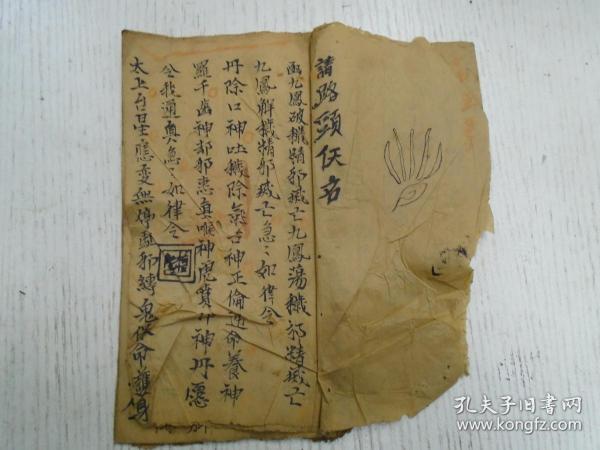 請路頭伕名
鳳破穢精邪滅亡九鳳蕩穢邪精滅亡
九鳳解穢精邪滅亡急〻如律令
丹除口神吐穢除氣舌神正倫通命養神
羅千齒神却邪患真喉神虎賁神丹愿
令我通真急〻如律令
太上台星應変無停馭邪縛鬼保命護身
孔夫子旧書网
www.kongfz.com